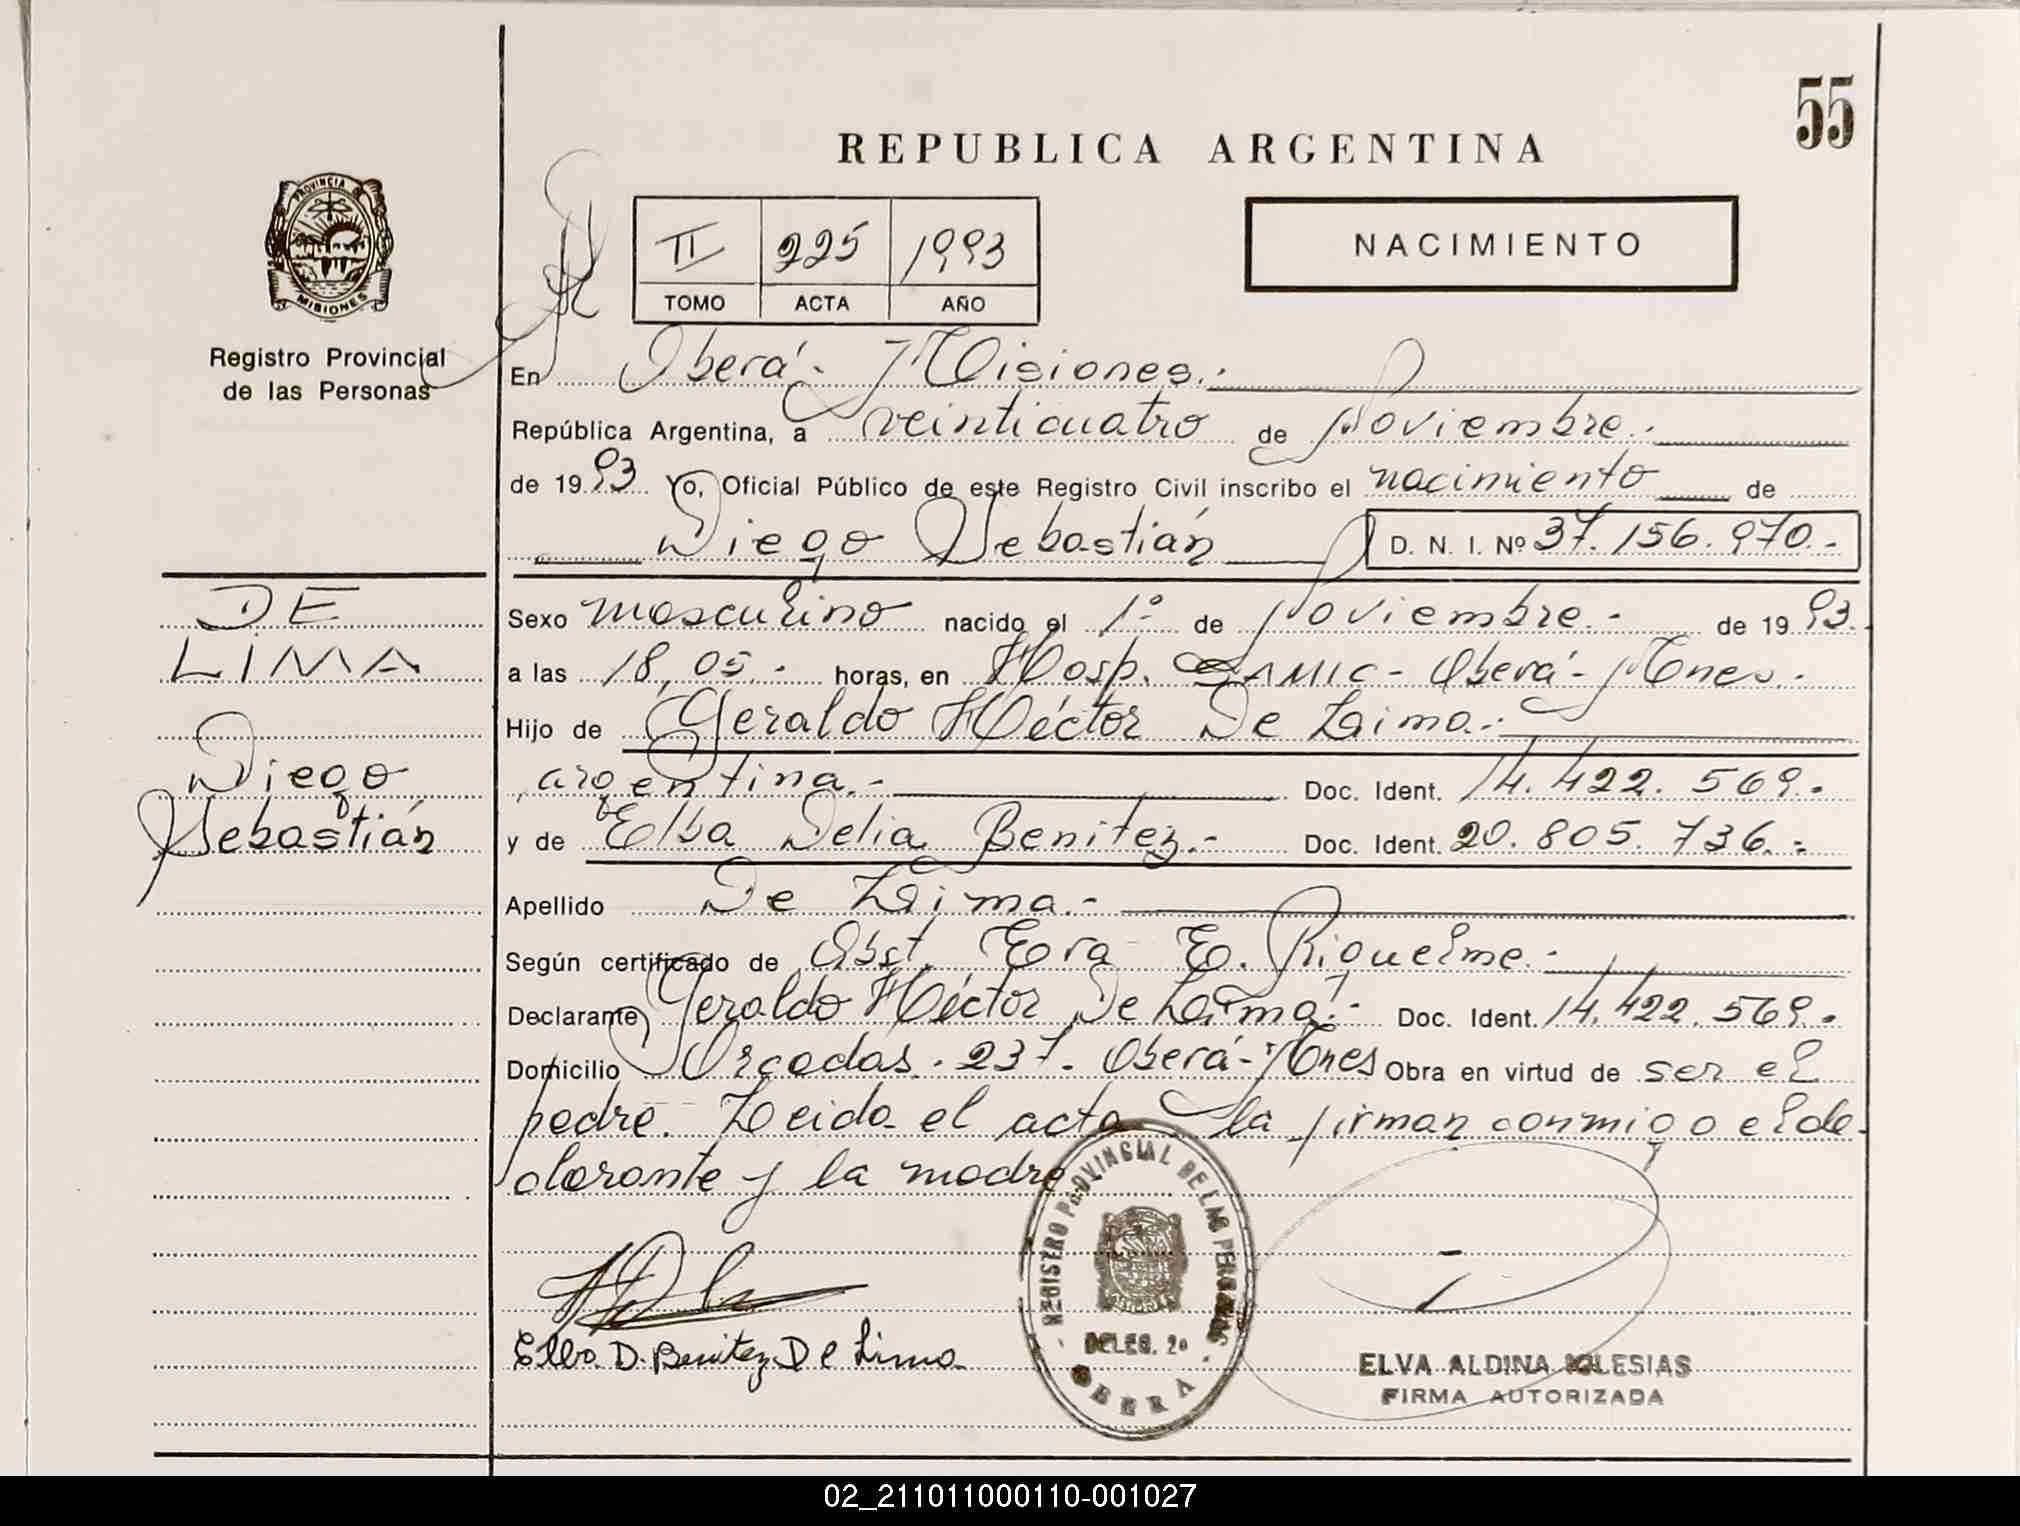 55
REPUBLICA ARGENTINA
PROVINCIA DE
MISIONES
II 225 1993
TOMO ACTA AÑO
NACIMIENTO
Registro Provincial
de las Personas
En Oberá - Misiones.-
República Argentina, a veinticuatro de Noviembre.-
de 1993 Yo, Oficial Público de este Registro Civil inscribo el nacimiento de
Diego Sebastián D. N. I. Nº 37.156.970.-
DE
LIMA
Diego
Sebastián
Sexo masculino nacido el 1º de Noviembre.- de 1993.
a las 18,05.- horas, en Hosp. SAMIC - Oberá - Mnes.-
Hijo de Geraldo Héctor De Lima.-
argentina.- Doc. Ident. 14.422.569.-
y de Elba Delia Benitez.- Doc. Ident. 20.805.736.-
Apellido De Lima.-
Según certificado de Obst. Eva E. Riquelme.-
Declarante Geraldo Héctor De Lima.- Doc. Ident. 14.422.569.-
Domicilio Orcadas. 237. Oberá - Mnes Obra en virtud de ser el
padre. Leida el acta la firman conmigo el de-
clarante y la madre
Elba D. Benitez De Lima
REGISTRO PROVINCIAL DE LAS PERSONAS
DELEG. 2a
OBERA
ELVA ALDINA IGLESIAS
FIRMA AUTORIZADA
02_211011000110-001027